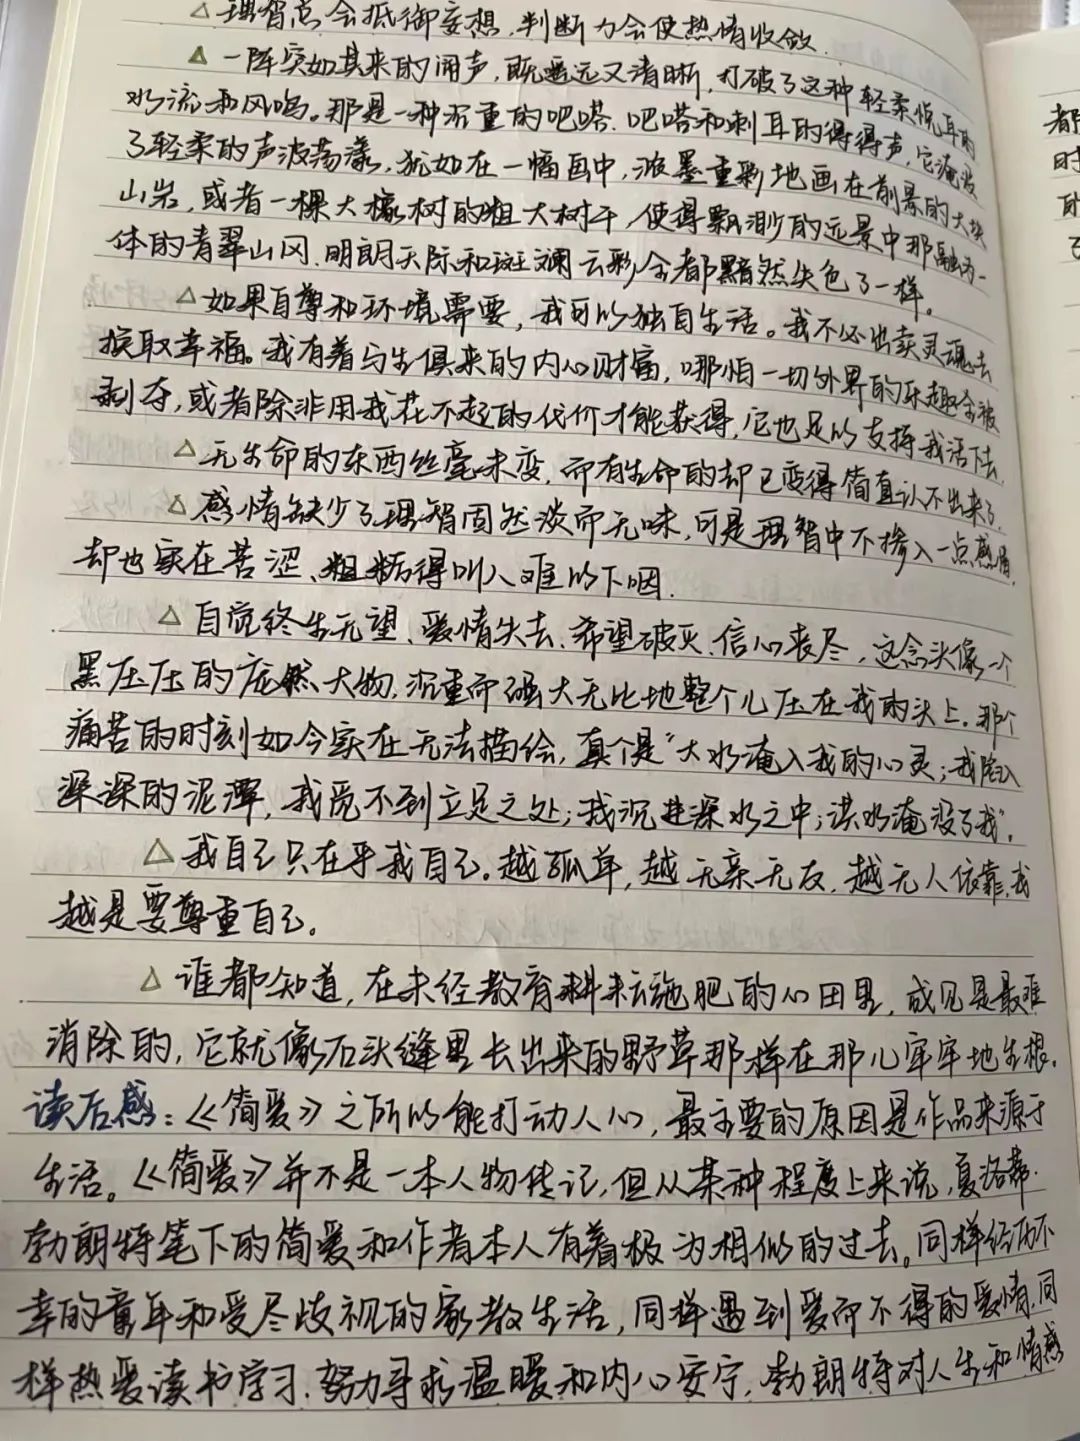 △理智总会抵御妄想,判断力会使热情收敛.
△一阵突如其来的闹声,既遥远又清晰,打破了这种轻柔悦耳的
水流和风鸣。那是一种沉重的吧嗒.吧嗒和刺耳的得得声,它淹没
了轻柔的声波荡漾,犹如在一幅画中,浓墨重彩地画在前景的大块
山岩,或者一棵大橡树的粗大树干,使得飘渺的远景中那融为一
体的青翠山冈.明朗天际和斑斓云彩全都黯然失色了一样。
△如果自尊和环境需要,我可以独自生活。我不必出卖灵魂去
换取幸福。我有着与生俱来的内心财富,哪怕一切外界的乐趣全被
剥夺,或者除非用我花不起的代价才能获得,它也足以支持我活下去
△无生命的东西丝毫未变,而有生命的却已变得简直认不出来了.
△感情缺少了理智固然淡而无味,可是理智中不掺入一点感情,
却也实在苦涩、粗粝得叫人难以下咽.
△自觉终生无望、爱情失去、希望破灭、信心丧尽,这念头像一个
黑压压的庞然大物,沉重而强大无比地整个儿压在我的头上。那个
痛苦的时刻如今实在无法描绘,真个是“大水淹入我的心灵;我陷入
深深的泥潭,我觅不到立足之处;我沉进深水之中;洪水淹没了我”.
△我自己只在乎我自己。越孤单,越无亲无友,越无人依靠,我
越是要尊重自己。
△谁都知道,在未经教育耕耘施肥的心田里,成见是最难
消除的,它就像石头缝里长出来的野草那样在那儿牢牢地生根.
读后感:《简爱》之所以能打动人心,最主要的原因是作品来源于
生活。《简爱》并不是一本人物传记,但从某种程度上来说,夏洛蒂·
勃朗特笔下的简爱和作者本人有着极为相似的过去。同样经历不
幸的童年和受尽歧视的家教生活,同样遇到爱而不得的爱情,同
样热爱读书学习.努力寻求温暖和内心安宁,勃朗特对人生和情感
都
时